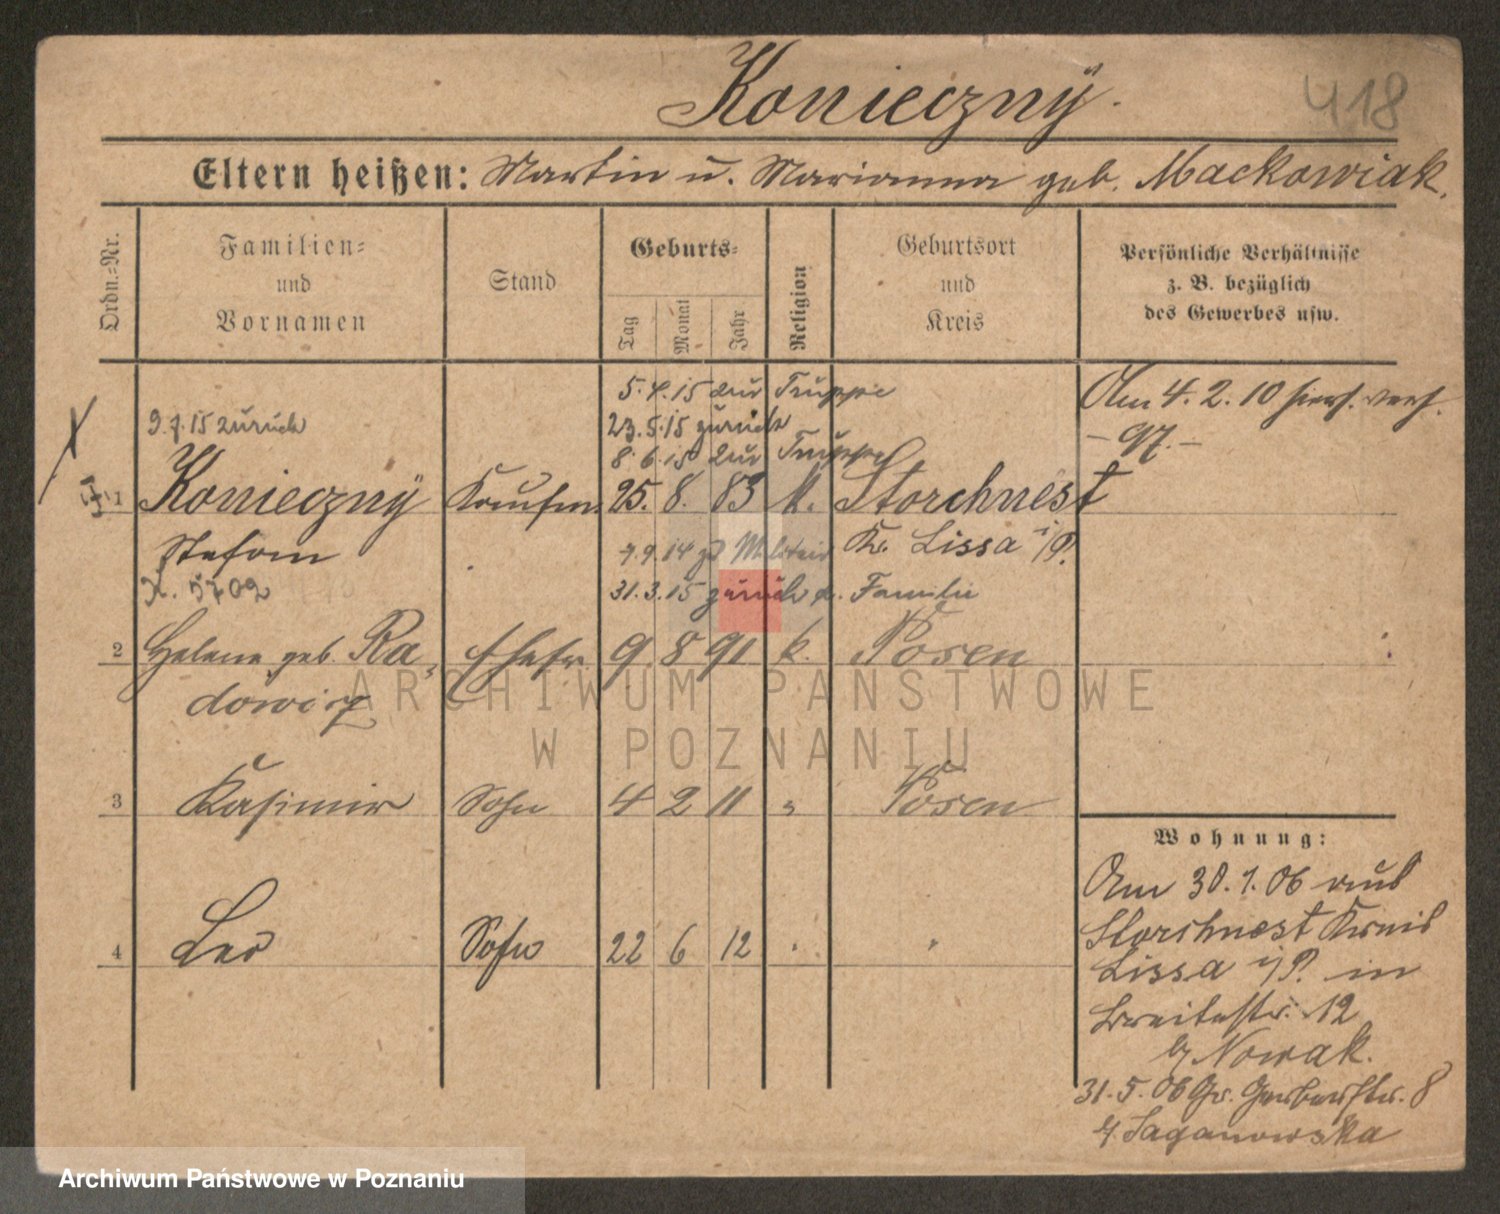 Konieczny
418
Eltern heißen: Martin u. Marianna geb. Mackowiak.
Ordn.=Nr.
Familien=
und
Vornamen
Stand
Geburts=
Tag
Monat
Jahr
Religion
Geburtsort
und
Kreis
Persönliche Verhältnisse
z. B. bezüglich
des Gewerbes usw.
5.4.15 zur Truppe
9.7.15 zurück 23.5.15 zurück
8.6.15 zur Truppe
Am 4.2.10 hiers. verh.
- 97. -
1 Konieczny Kaufm. 25. 8. 83 k. Storchnest
Stefan 4.9.14 z. Militair Kr. Lissa i/P.
X. 5709 31.3.15 zurück z. Familie
2 Helene geb. Ra- Ehefr. 9. 8 91 k. Posen
dowicz
3 Kasimir Sohn 4 2 11 " Posen
4 Leo Sohn 22 6 12 " "
Wohnung:
Am 30.1.06 aus
Storchnest Kreis
Lissa i/P. in
Breitestr. 12
b/ Nowak.
31.5.06 Gr. Gerberstr. 8
b/ Saganowska
ARCHIWUM PAŃSTWOWE
W POZNANIU
Archiwum Państwowe w Poznaniu